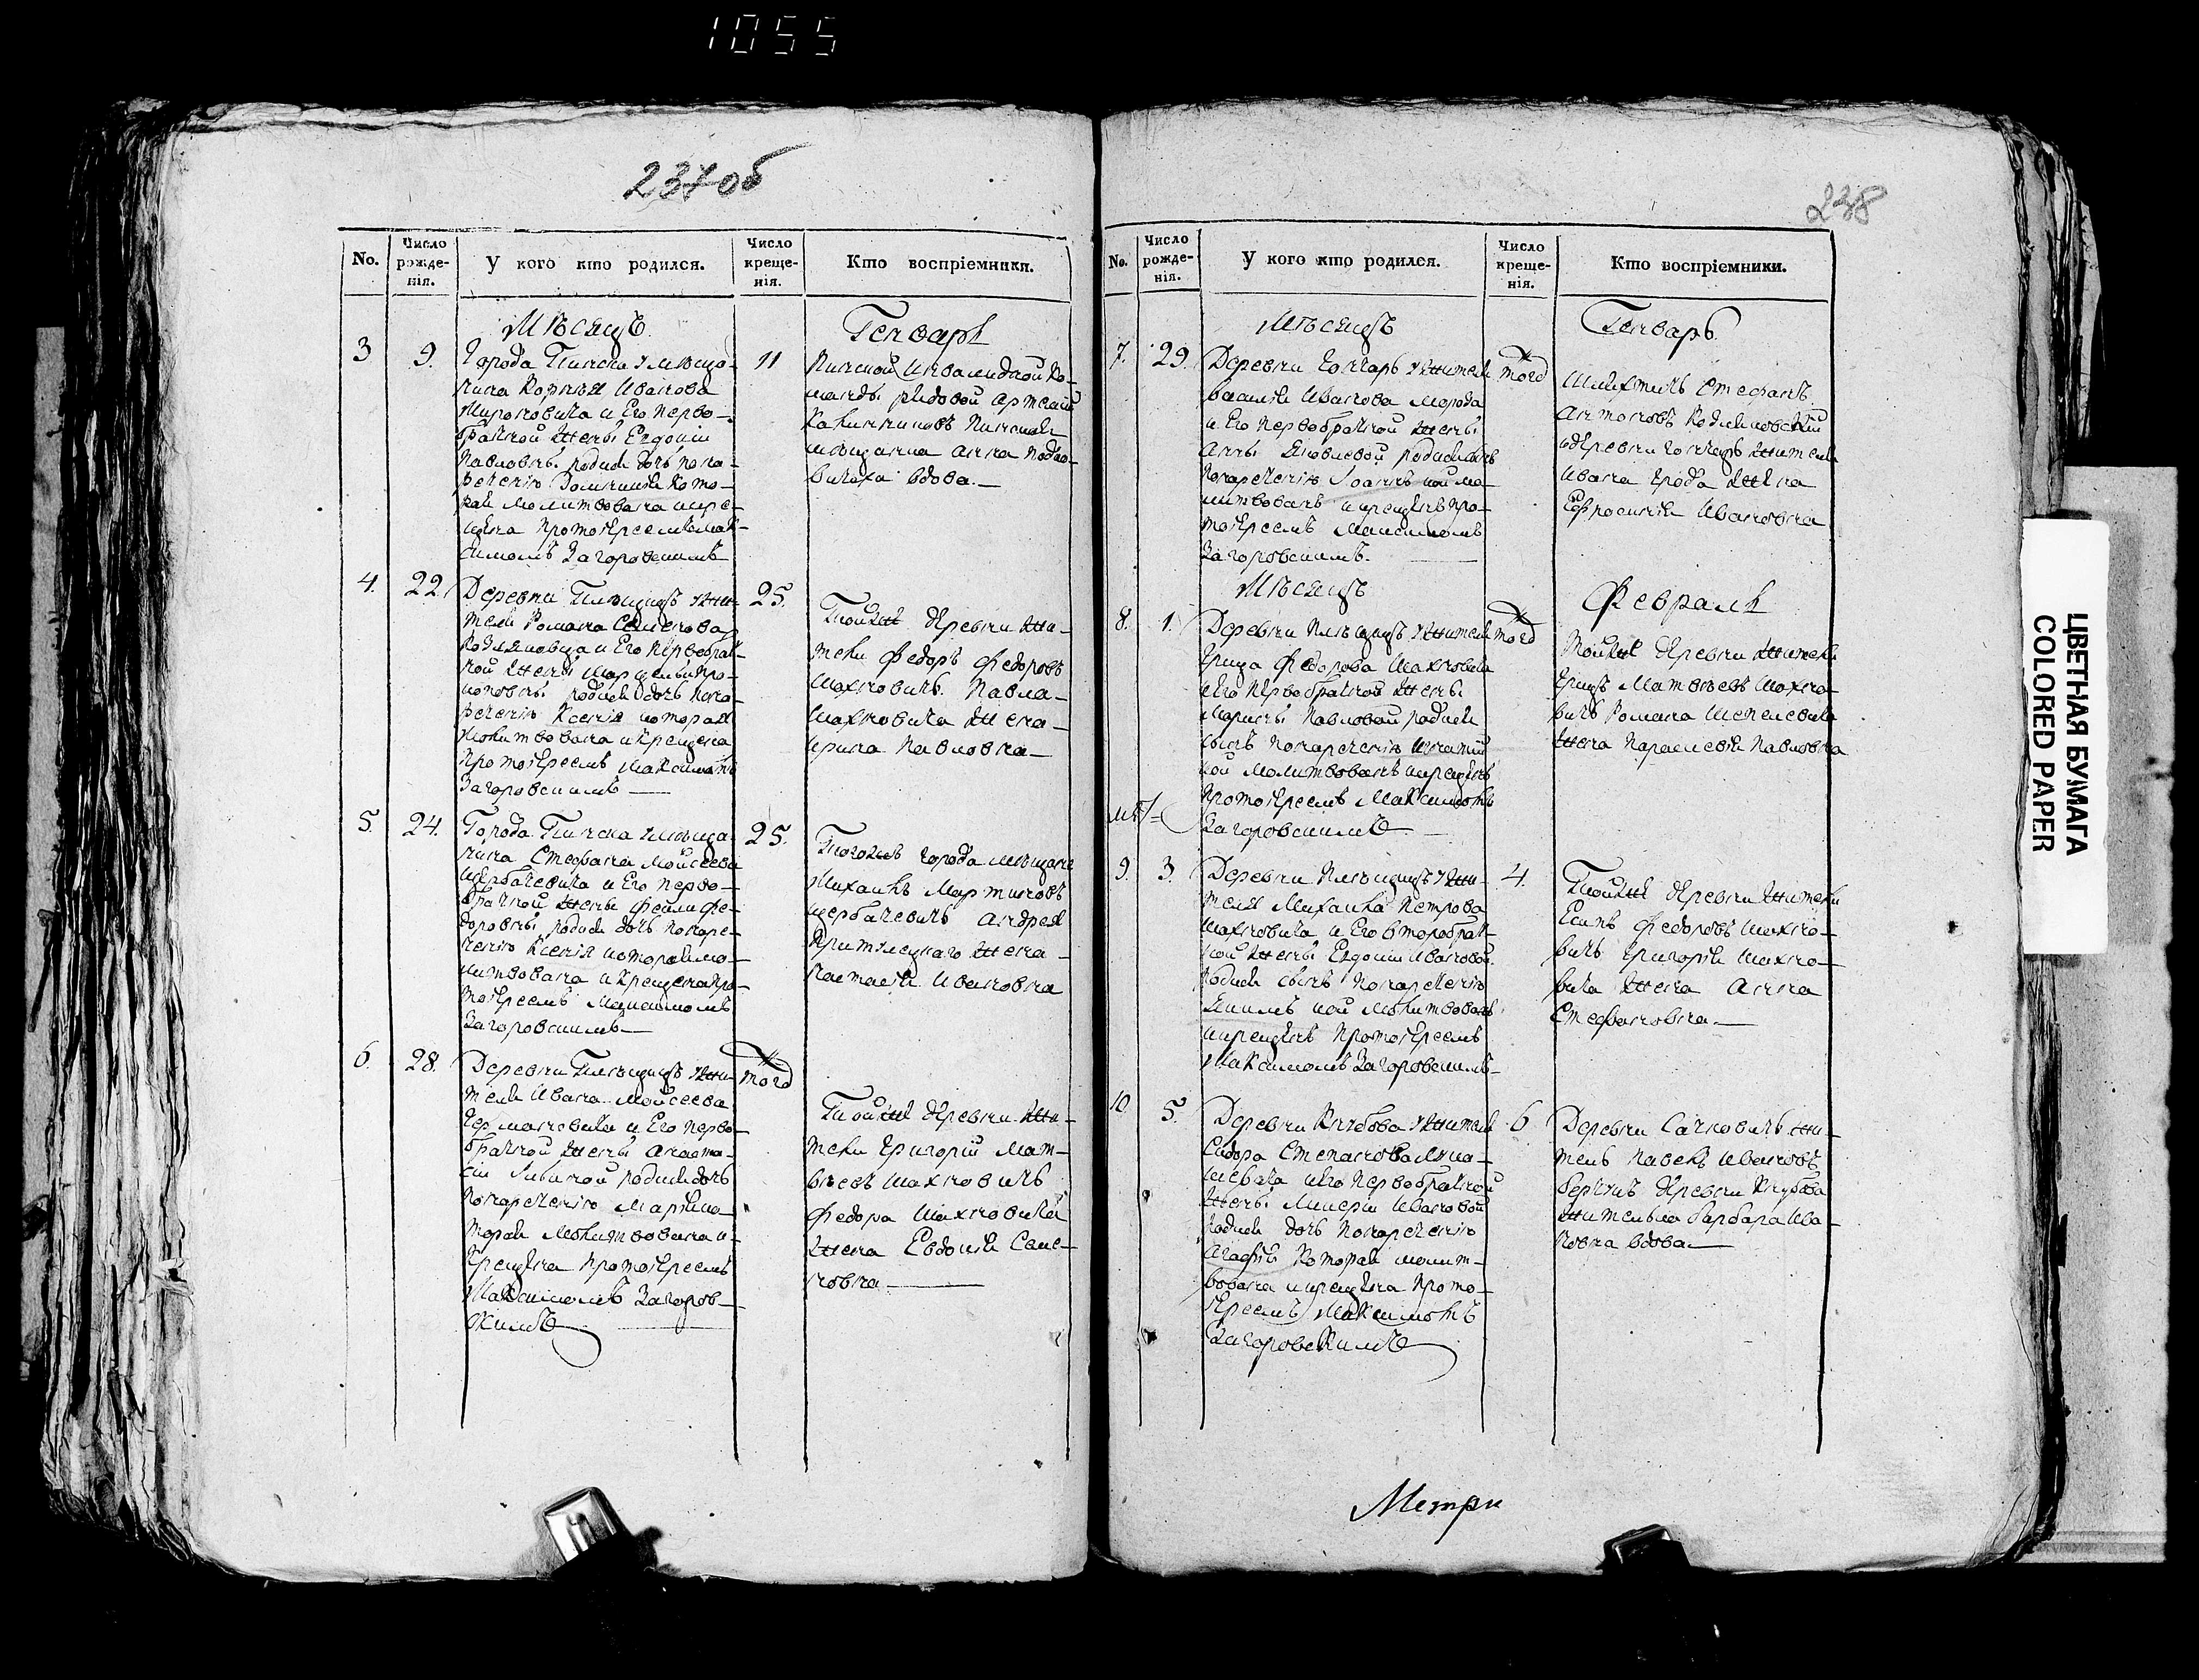 1055
237об
No.
Число рожде- нія.
У кого кто родился.
Число креще- нія.
Кто воспріемники.
Мѣсяцъ
Генварь
3
9.
Города Пинска у мѣща-
нина Корнѣя Иванова
Мироновича и Его перво-
брачной жены Евдокіи
Павловны родися дочь нана-
реченію Домникія Кото-
рая молитвована икре-
щена протоіереемъ Мак-
симомъ Загоровскимъ
11
Пинской Инвалидной Ко-
манды рядовой Артемій
Калинниковъ Пинская
мѣщанка Анна
вдова.
4.
22.
Деревни Плещицъ у жи-
теля Романа Семенова
и Его первобрач-
ной жены Про-
коповны родися дочь пона-
реченію Ксенія которая
молитвована икрещена
Протоіереемъ Максимомъ
Загоровскимъ
25.
Тойже деревни жи-
тели Федоръ Федоровъ
Махновичь. Павла
Махновича жена
Ирина Павловна
5.
24.
Города Пинска у мѣща-
нина Стефана Мойсеева
Щербачевича и Его перво-
брачной жены Феклы Фе-
доровны родися дочь понаре-
ченію Ксенія которая мо-
литвована и крещена про-
тоіереемъ Максимомъ
Загоровскимъ
25.
Тогожъ города мѣщане
Михаилъ Мартиновъ
Щербачевичь Андрея
жена
Настасія Ивановна
6.
28.
Деревни Плещицъ у жи-
теля Ивана Мойсеева
Германовича и Его перво-
брачной жены Анаста-
сіи родися дочь
понареченію Марія ко-
торая молитвована и
крещена протоіереемъ
Максимомъ Загоров-
скимъ
тогд
Тойже деревни жи-
тели Григорій Мат-
вѣевъ Махновичь
Федора Махновича
жена Евдокія Семе-
новна
238
No.
Число рожде- нія.
У кого кто родился.
Число креще- нія.
Кто воспріемники.
Мѣсяцъ
Генварь
7.
29.
Деревни Гончаръ у жителя
Василія Иванова Мороза
и Его первобрачной жены
Анны Яковлевой родися сынъ
понареченію Іоаннъ кой мо-
литвованъ и крещенъ про-
тоіереемъ Максимомъ
Загоровскимъ.
тогд
Шляхтичь Стефанъ
Антоновъ
Деревни Гончаръ жителя
Ивана жена
Ефросинія Ивановна
Мѣсяцъ
Февраля
8.
1.
Деревни Плещицъ у жителя
Грица Федорова Махновича
и Его первобрачной жены
Марины Павловой родися
сынъ понареченію Игнатій
кой молитвованъ икрещенъ
протоіереемъ Максимомъ
Загоровскимъ
тогд
Тойже деревни жители
Грицъ Матвѣевъ Махно-
вичь Романа Шепелевича
жена Параскевія Павловна
9.
3.
Деревни Плещицъ у жи-
теля Михаила Петрова
Махновича и Его второбрач-
ной жены Евдокіи Ивановой
родися сынъ понареченію
Якимъ кой молитвованъ
икрещенъ протоіереемъ
Максимомъ Загоровскимъ
4.
Тойже деревни жители
Есипъ Федоровъ Махно-
вичь Григорія Махно-
вича жена Анна
Стефановна
10.
5.
Деревни Кнубова у жителя
Сидора Степанова
и Его первобрачной
жены Ивановой
родися дочь понареченію
Агафія Которая молит-
вована икрещена прото-
іереемъ Максимомъ
Загоровскимъ
6
Деревни Сачковичь жи-
тель Павелъ Ивановъ
деревни Кнубова
жителька Варвара Ива-
новна вдова
Метри
ЦВЕТНАЯ БУМАГА
COLORED PAPER